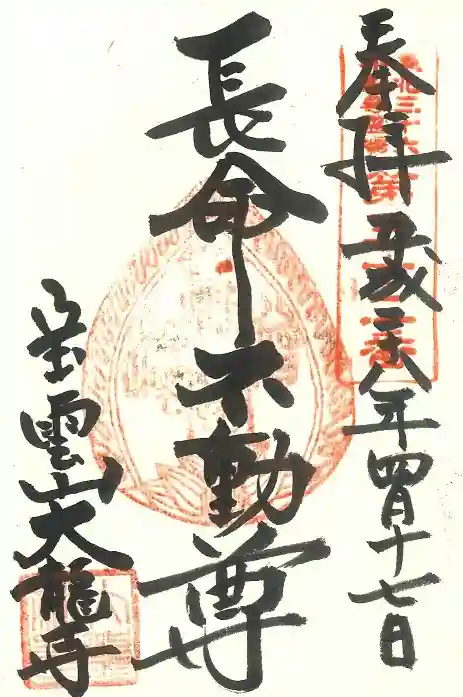 奉拝 平成二十八年四月十七日
長命不動尊
宝雲山大龍寺